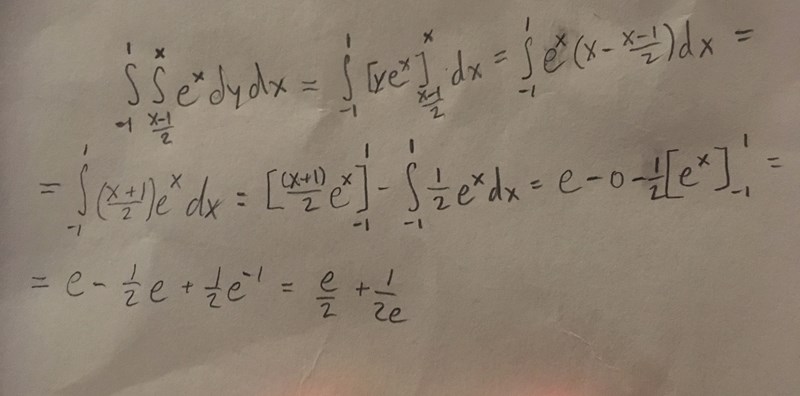 ∫_{-1}^{1} ∫_{\frac{x-1}{2}}^{x} e^x dy dx = ∫_{-1}^{1} [ye^x]_{\frac{x-1}{2}}^{x} dx = ∫_{-1}^{1} e^x (x - \frac{x-1}{2}) dx =
= ∫_{-1}^{1} (\frac{x+1}{2}) e^x dx = [\frac{(x+1)}{2} e^x]_{-1}^{1} - ∫_{-1}^{1} \frac{1}{2} e^x dx = e - 0 - \frac{1}{2} [e^x]_{-1}^{1} =
= e - \frac{1}{2} e + \frac{1}{2} e^{-1} = \frac{e}{2} + \frac{1}{2e}